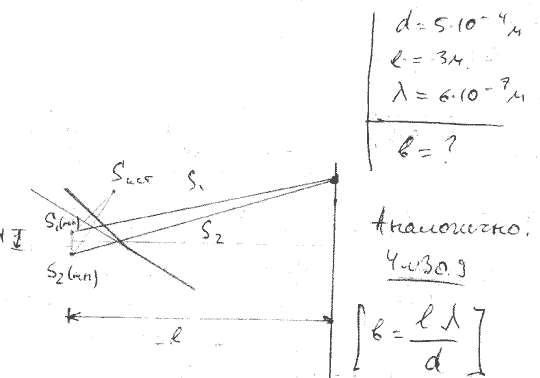 d = 5·10⁻⁴ м
l = 3м.
λ = 6·10⁻⁷ м
b = ?
Sист
S₁
S₁(мн)
S₂
S₂(мн)
d
l
Аналогично.
[b = lλ/d]